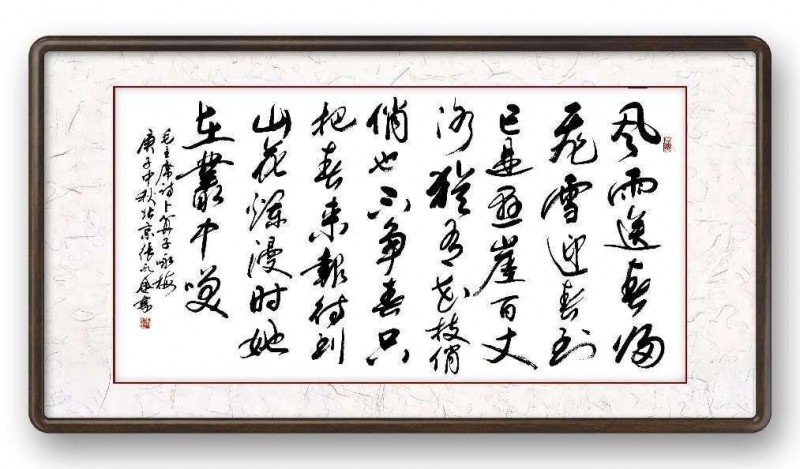 风雨送春归
飞雪迎春到
已是悬崖百丈
冰犹有花枝俏
俏也不争春只
把春来報待到
山花烂漫时她
在叢中笑
毛主席诗卜算子咏梅
庚子中秋 京张